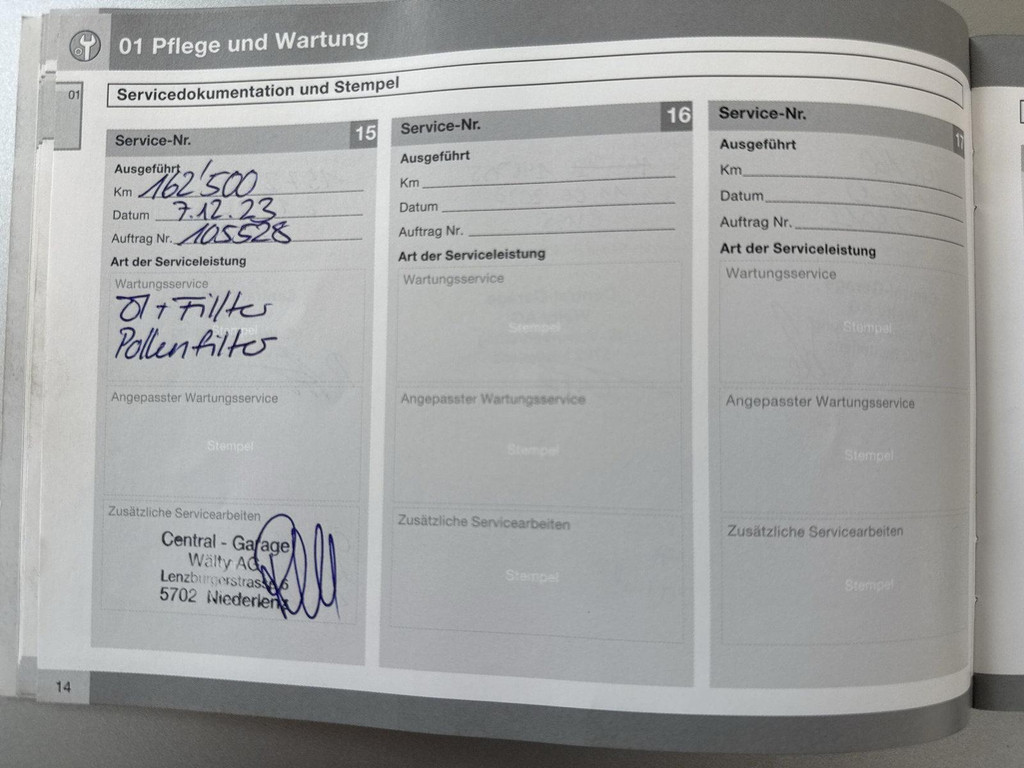 01 Pflege und Wartung
01
Servicedokumentation und Stempel
Service-Nr. 15
Ausgeführt
Km 162'500
Datum 7.12.23
Auftrag Nr. 105528
Art der Serviceleistung
Wartungsservice
Stempel
Öl + Fillter
Pollenfilter
Angepasster Wartungsservice
Stempel
Zusätzliche Servicearbeiten
Central - Garage
Wälty AG
Lenzburgerstrasse 6
5702 Niederlenz
Service-Nr. 16
Ausgeführt
Km
Datum
Auftrag Nr.
Art der Serviceleistung
Wartungsservice
Stempel
Angepasster Wartungsservice
Stempel
Zusätzliche Servicearbeiten
Stempel
Service-Nr. 17
Ausgeführt
Km
Datum
Auftrag Nr.
Art der Serviceleistung
Wartungsservice
Stempel
Angepasster Wartungsservice
Stempel
Zusätzliche Servicearbeiten
Stempel
14